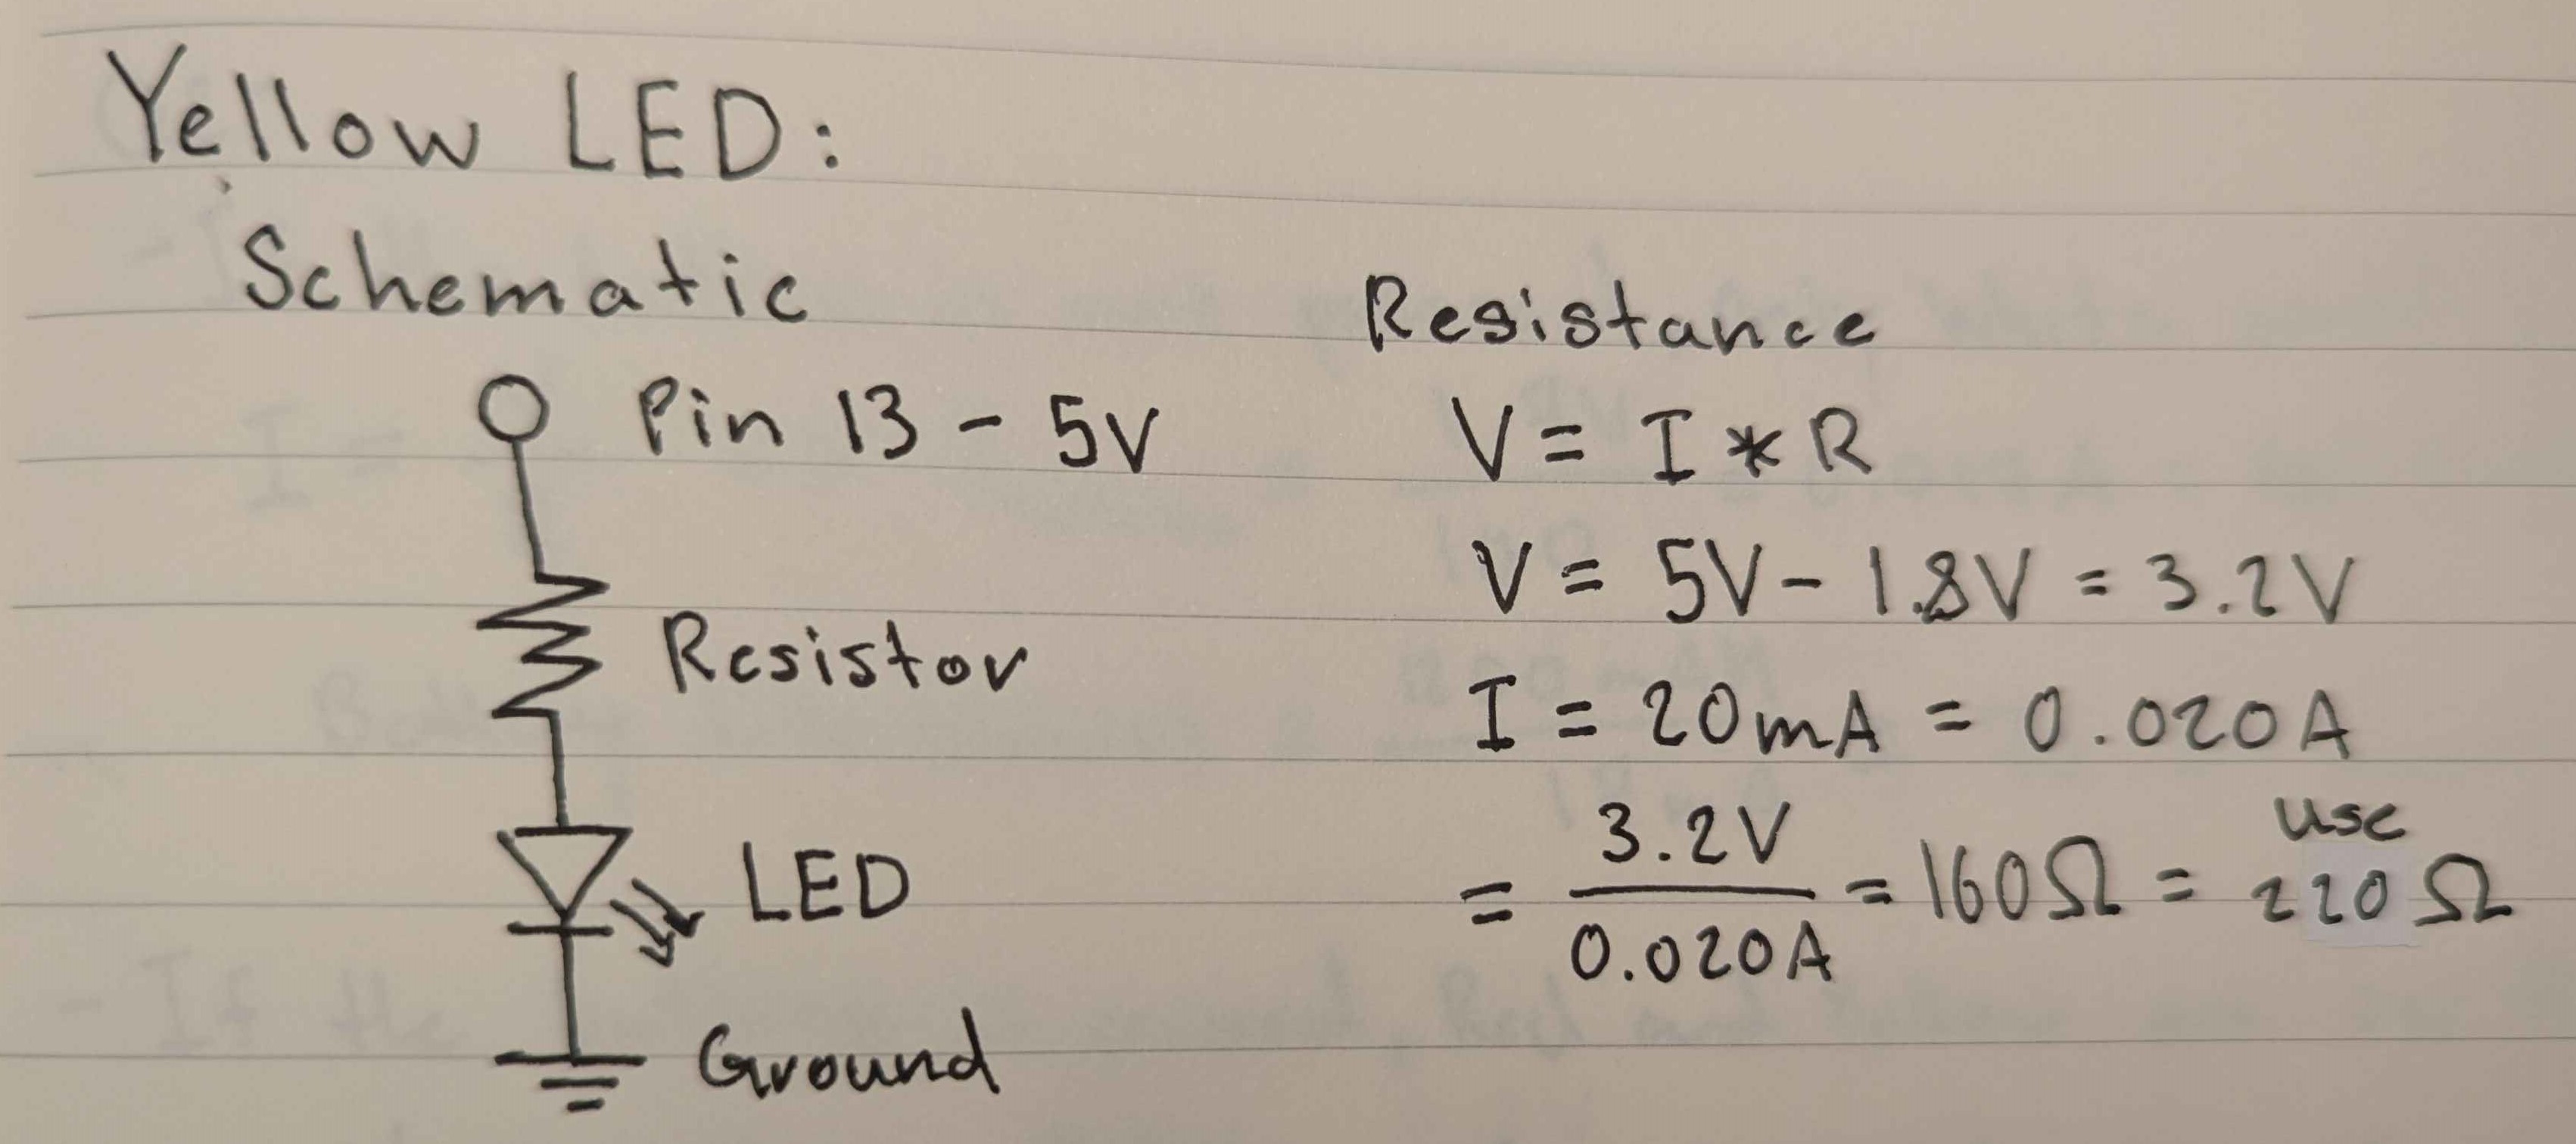 Yellow LED:
Schematic
Pin 13 - 5V
Resistor
LED
Ground
Resistance
V = I * R
V = 5V - 1.8V = 3.2V
I = 20mA = 0.020A
= 3.2V / 0.020A = 160Ω = use 220Ω